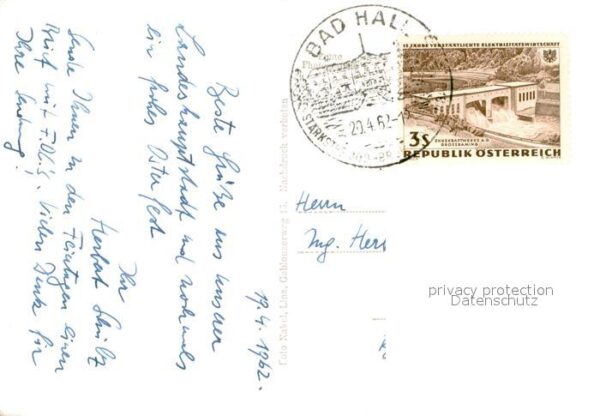 19.4.1962.
Beste Grüße aus unserer
Landeshauptstadt und nochmals
ein frohes Osterfest
Ihr
Herbert
Sende Ihnen in den Feiertagen einen
Brief mit F.W.'s. Vielen Dank für
Ihre Sendung!
Foto Nakel, Linz, Gablonzerweg 15. Nachdruck verboten
BAD HALL
20.4.62-15
STÄRKSTE JOD-
15 JAHRE VERSTAATLICHTE ELEKTRIZITÄTSWIRTSCHAFT
ENNSKRAFTWERKE A.G.
GROSSRAMING
3S
REPUBLIK ÖSTERREICH
Herrn
Ing. Herr
privacy protection
Datenschutz